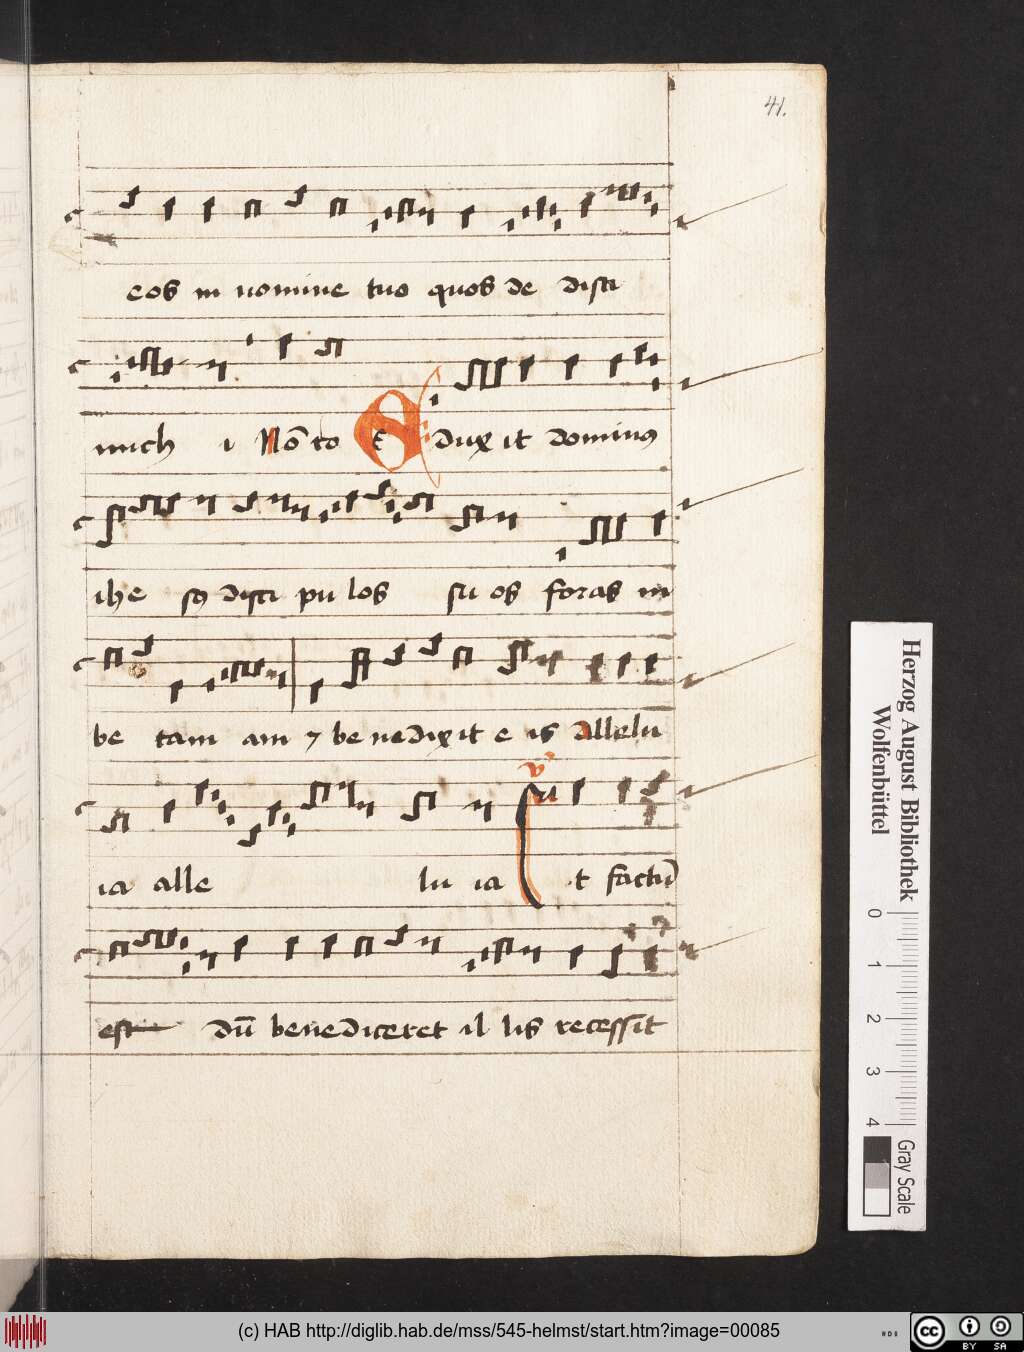 41.
eos in nomine tuo quos de disti
mich i Nō to E dux it dominus
ihe sꝯ disci pu los su os foras in
be tam am ⁊ be nedix it e is Allelu
℣
ia alle lu ia t factū
est dū benediceret il lis recessit
Herzog August Bibliothek
Wolfenbüttel
0 1 2 3 4
Gray Scale
(c) HAB http://diglib.hab.de/mss/545-helmst/start.htm?image=00085
cc BY SA